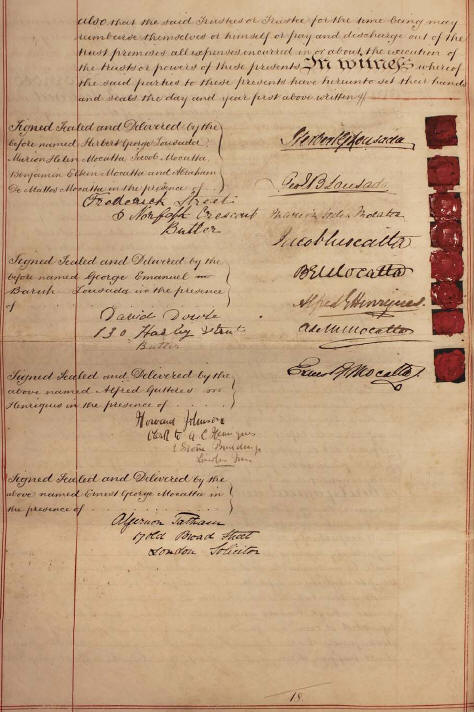 also that the said Trustees or Trustee for the time being may
reimburse themselves or himself or pay and discharge out of the
trust premises all expenses incurred in or about the execution of
the trusts or powers of these presents In witness whereof
the said parties to these presents have hereunto set their hands
and seals the day and year first above written
Signed Sealed and Delivered by the
before named Herbert George Lousada
Marion Helen Mocatta Jacob Mocatta,
Benjamin Elkin Mocatta and Abraham
De Mattos Mocatta in the presence of
Frederick Street
8 Norfolk Crescent
Butler
Herbert G Lousada
Geo E B Lousada
Marion Helen Mocatta
Jacob Mocatta
B E Mocatta
Alfred G Henriques
A de M Mocatta
Ernest G Mocatta
Signed Sealed and Delivered by the
before named George Emanuel
Baruh Lousada in the presence
of
David Dowle
130 Harley Street
Butler
Signed Sealed and Delivered by the
above named Alfred Gutteres
Henriques in the presence of
Howard Johnson
Clerk to A G Henriques
Stone Buildings
Lincolns Inn
Signed Sealed and Delivered by the
above named Ernest George Mocatta in
the presence of
Algernon Tatham
17 Old Broad Street
London Solicitor
18